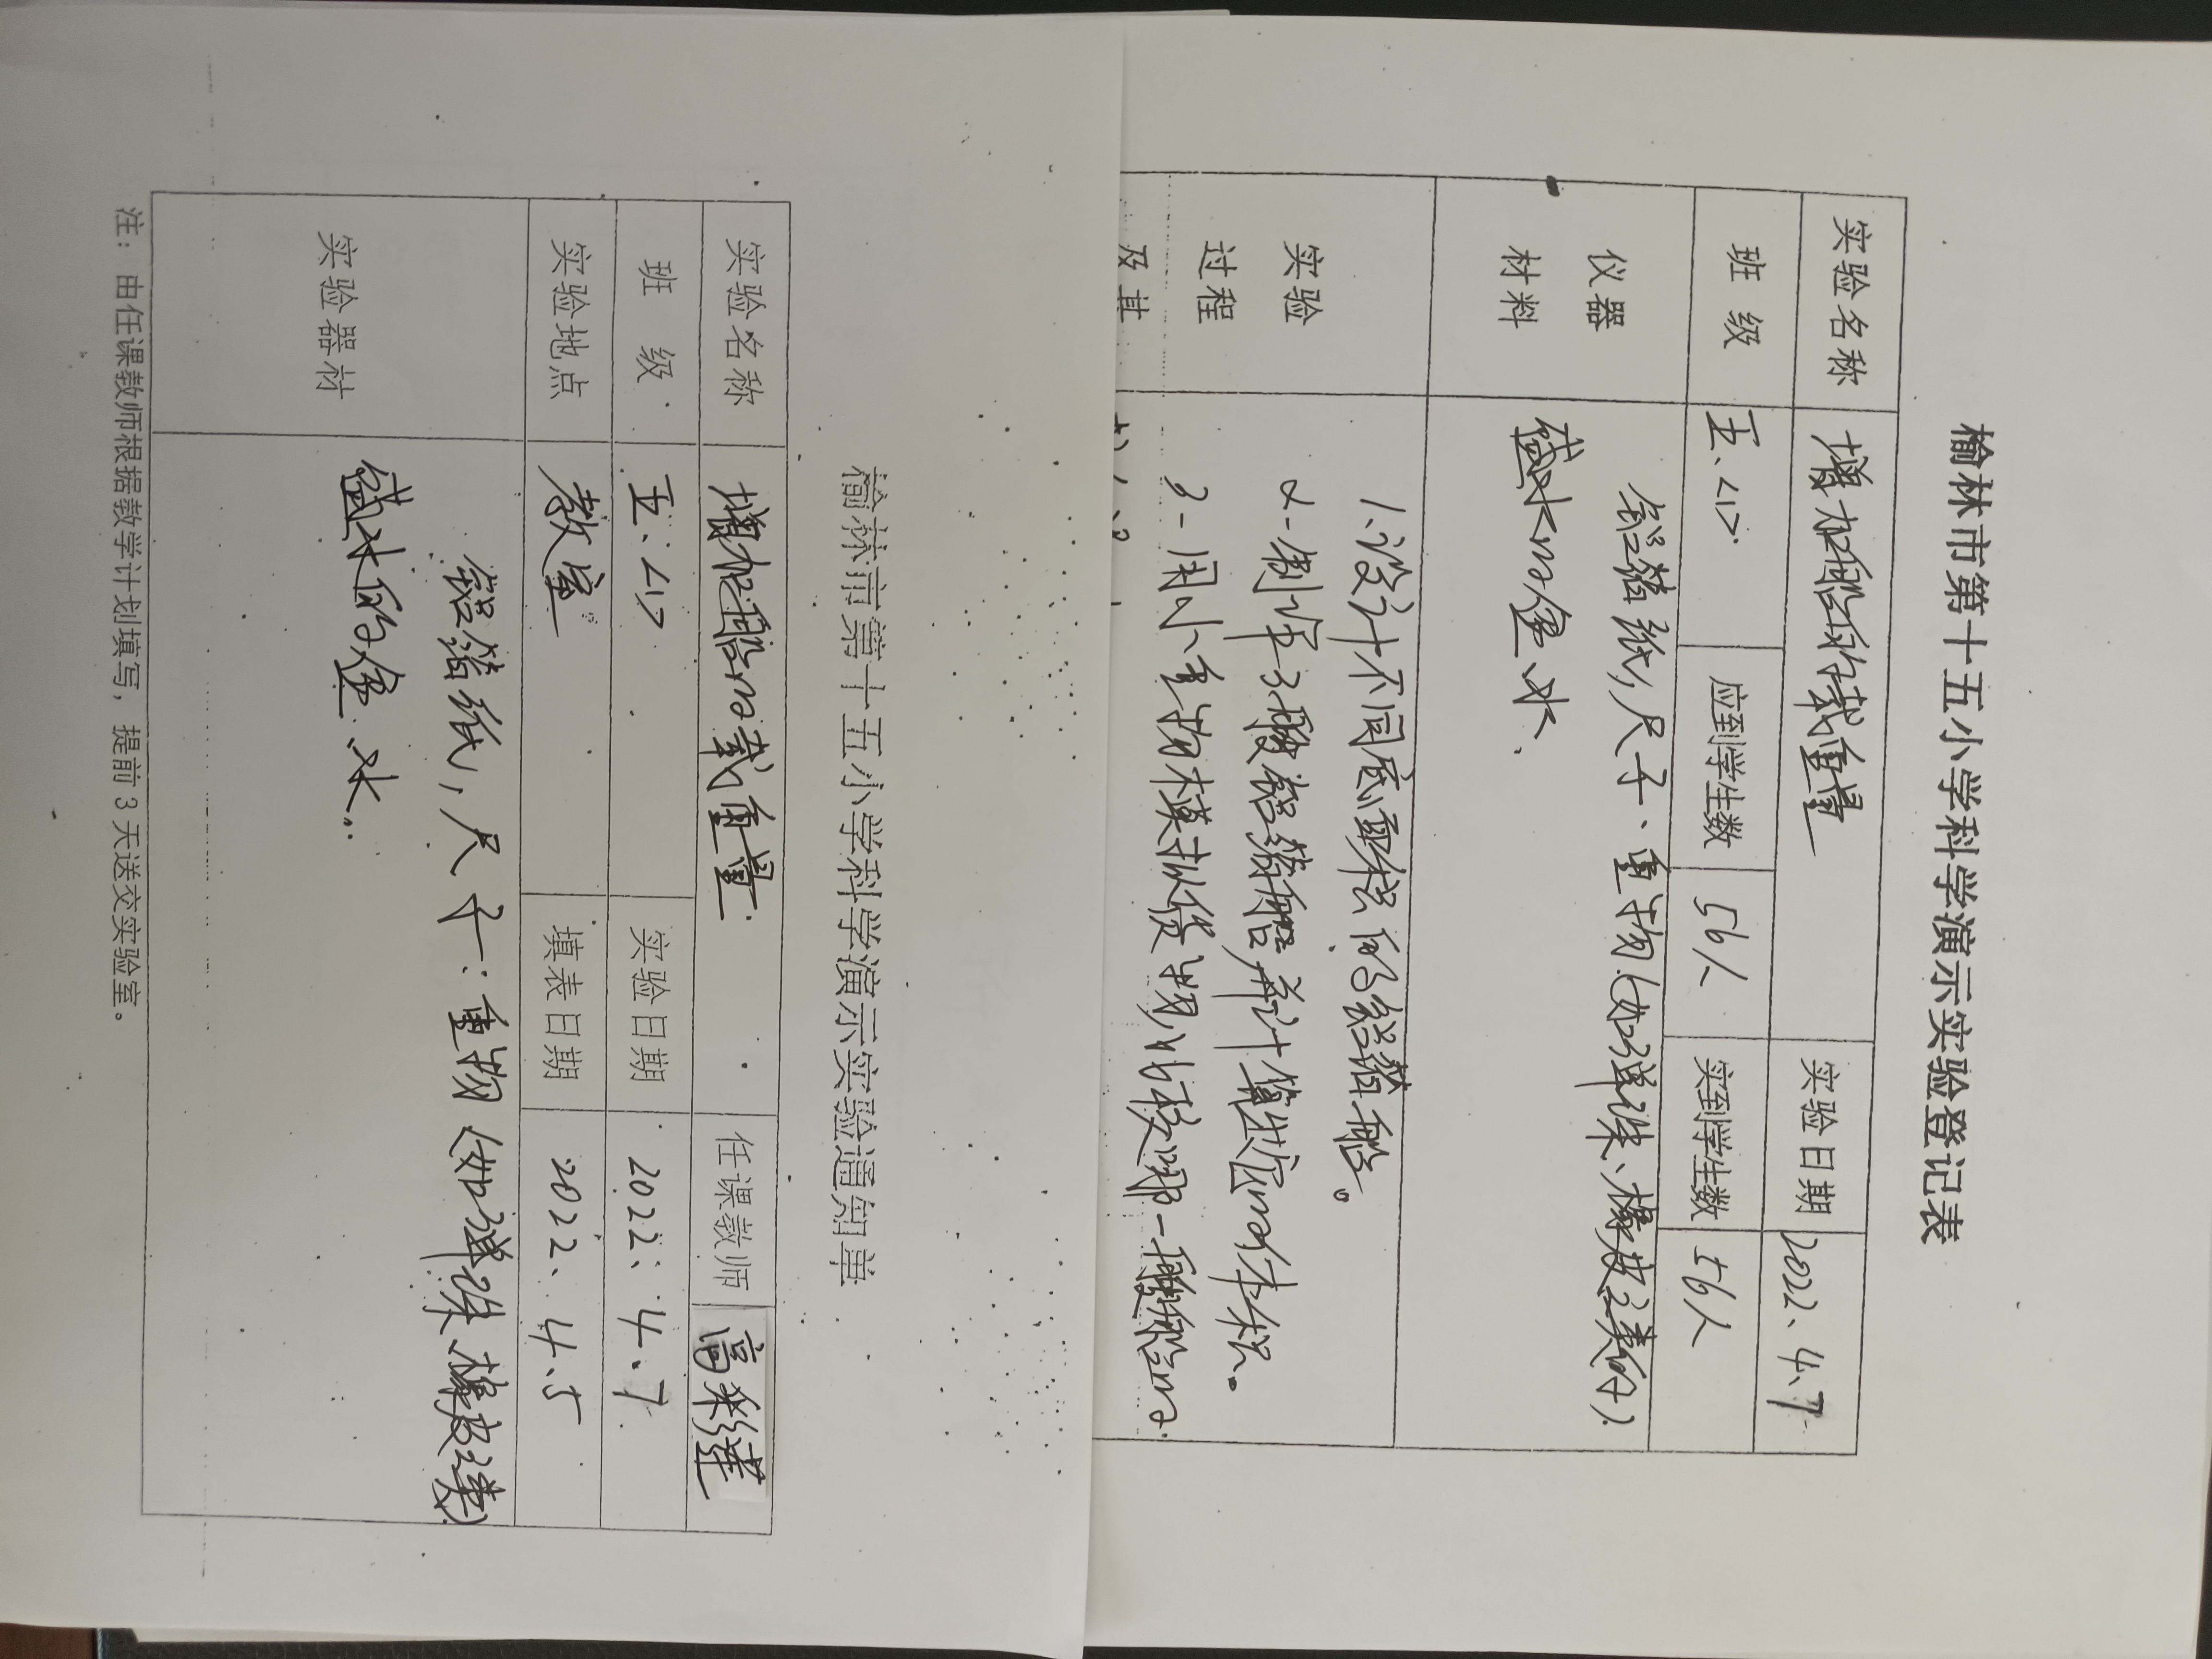 榆林市第十五小学科学演示实验登记表
实验名称 增加船的载重量 实验日期 2022、4、7
班 级 五、<1> 应到学生数 56人 实到学生数 56人
仪器 铝箔纸,尺子、重物(如弹珠、橡皮之类的)
材料 盛水的盒、水、
1、设计不同底面积的铝箔船。
实验
2-制作3艘铝箔船并计算出它们的体积。
过程
3-用小重物模拟货物,比较哪一艘船的
及其
榆林市第十五小学科学演示实验通知单
实验名称 增加船的载重量 任课教师 高彩莲
班 级 五、<1> 实验日期 2022、4、7
实验地点 教室 填表日期 2022、4、5
铝箔纸,尺子、重物(如弹珠、橡皮之类)
实验器材 盛水的盒、水
注：由任课教师根据教学计划填写，提前3天送交实验室。